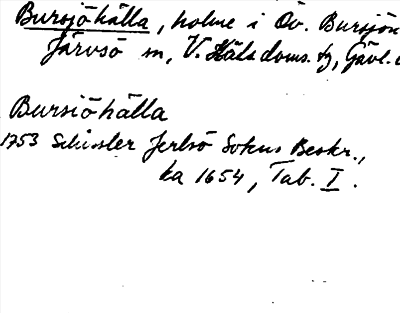 Bursjöhälla, holme i Öv. Bursjön
Järvsö sn, V. Häls doms. tg, Gävl.
Bursiöhälla
1753 Schissler Jerlsö Sokns Beskr.,
ka 1654, Tab. I.